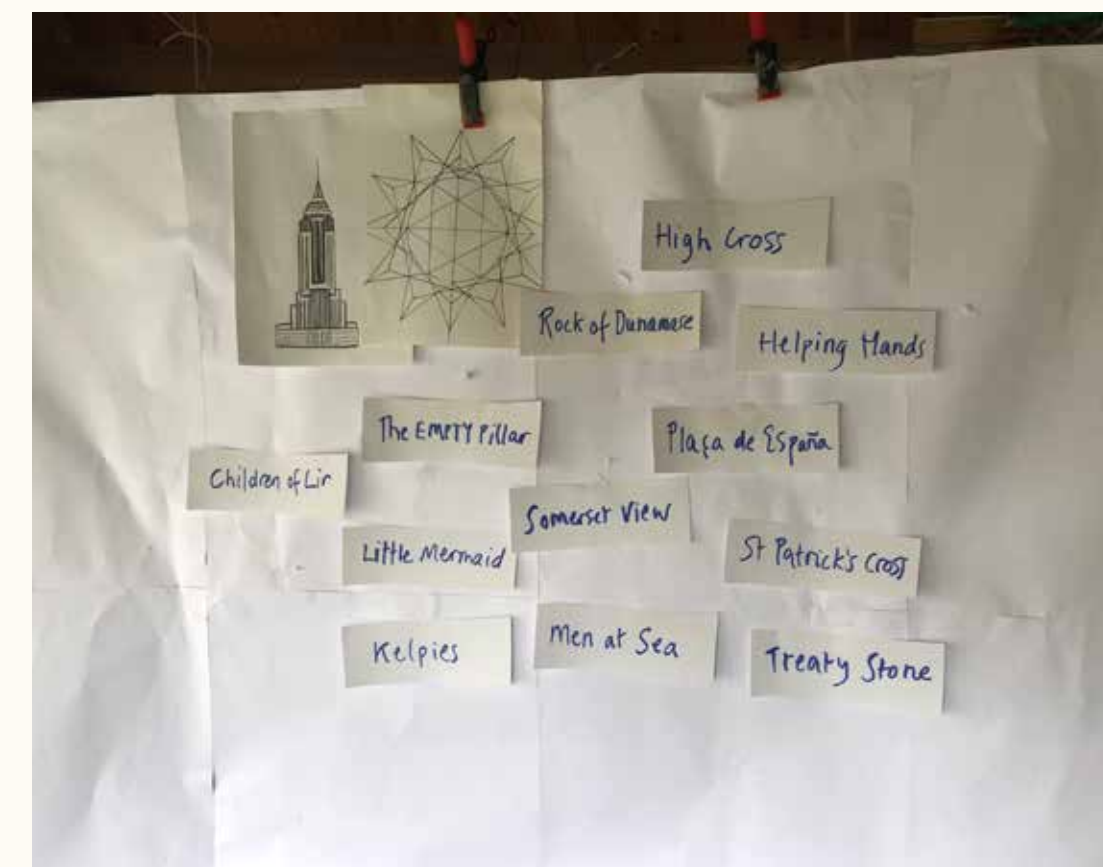 High Cross
Rock of Dunamase
Helping Hands
The EMPTY Pillar
Plaça de España
Children of Lir
Somerset View
Little Mermaid
St Patrick's Cross
Kelpies
Men at Sea
Treaty Stone